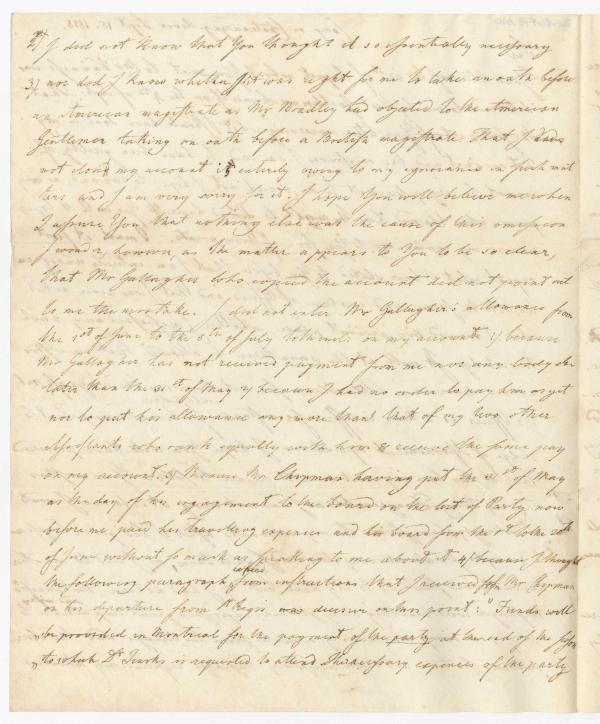 2/ I did not know that You thought it so essentially necessary
3/ nor did I know whether it was right for me to take an oath before
an American magistrate as Mr Bradley had objected to the American
Gentlemen taking an oath before a British magistrate. That I have
not closed my account is entirely owing to my ignorance in such mat
ters and I am very sorry for it. I hope You will believe me when
I assure You that nothing else was the cause of this omission
I wonder, however, as the matter appears to You to be so clear,
that Mr Gallagher who copied the account did not point out
to me the mistake. I did not enter Mr Gallagher's allowance from
the 1st of June to the 5th of July both incl: on my account 1/ because
Mr Gallagher has not received payment from me nor any body else
later than the 31st of May 2/ because I had no order to pay him as yet
nor to put his allowance any more than that of my two other
Assistants who rank equally with him & receive the same pay
on my account. 3/ Because Mr Chipman having put the 31st of May
as the day of his engagement to the board on the list of Party now
before me, paid his travelling expences and his board from the 1st to the 20th
of June without so much as speaking to me about it 4/ because I thought
the following paragraph copied from instructions that I received from Mr Chipman
on his departure from St Regis was decisive on this point: "Funds will
"be provided in Montreal for the payment of the party at the end of the season
"to which Dr Tiarks is requested to attend The necessary expences of the party